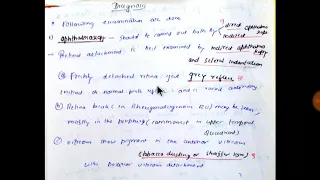 Diagnosis
Following examination are done
① ophthalmoscopy - Should be carried out both by direct ophthalmoscopy
indirect
- Retinal detachment is best examined by indirect ophthalmoscopy
and scleral indentation
ⓐ Freshly detached retina give grey reflex
instead of normal pink reflex and is raised anteriorly
ⓑ Retinal breaks in Rhegmatogenous RD may be seen,
mostly in the periphery (commonest in upper temporal
quadrant)
ⓒ vitreous show pigment in the anterior vitreous
(tobacco dusting or shaffer sign)
with posterior vitreous detachment